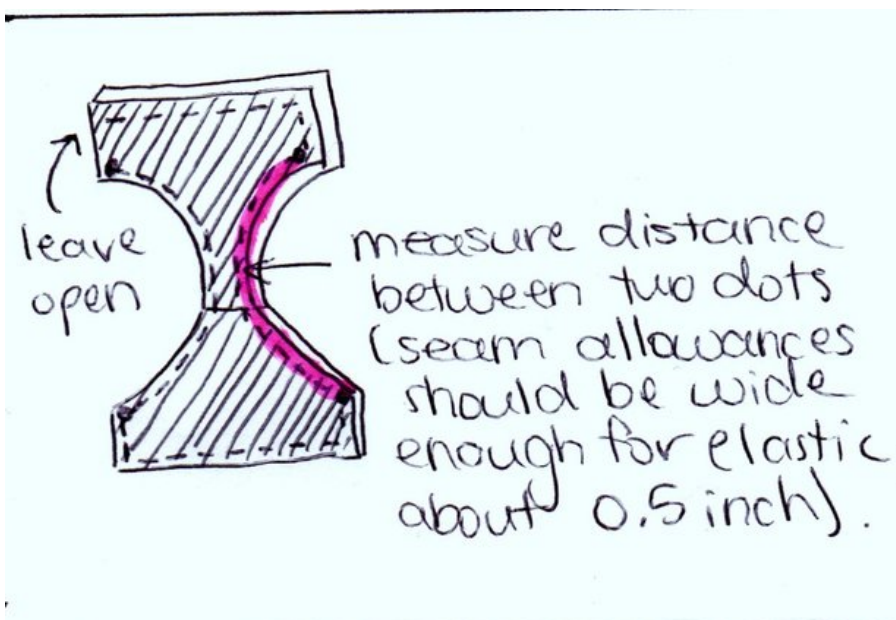 leave
open
measure distance
between two dots
(seam allowances
should be wide
enough for elastic
about 0.5 inch).